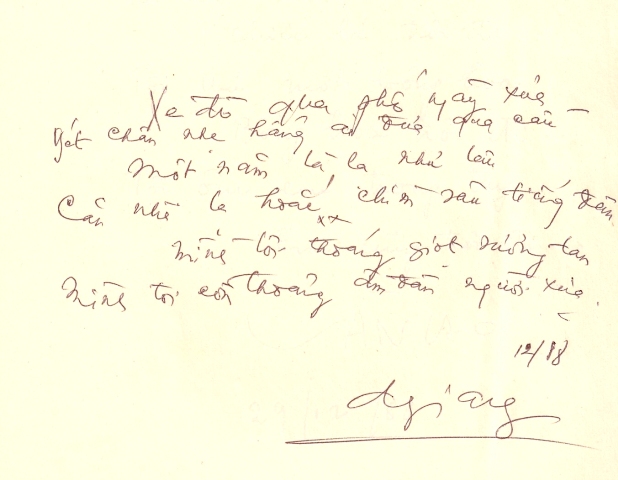 Xe đò qua phố ngày xưa
gót chân nhẹ hẫng ai đưa qua cầu
Một năm là, là như lâu
Căn nhà la hoắc, chim sâu tiếng đàn
Mình tôi thoáng giọt sương tan
Mình tôi còn thoảng âm đàn người xưa.
12/88